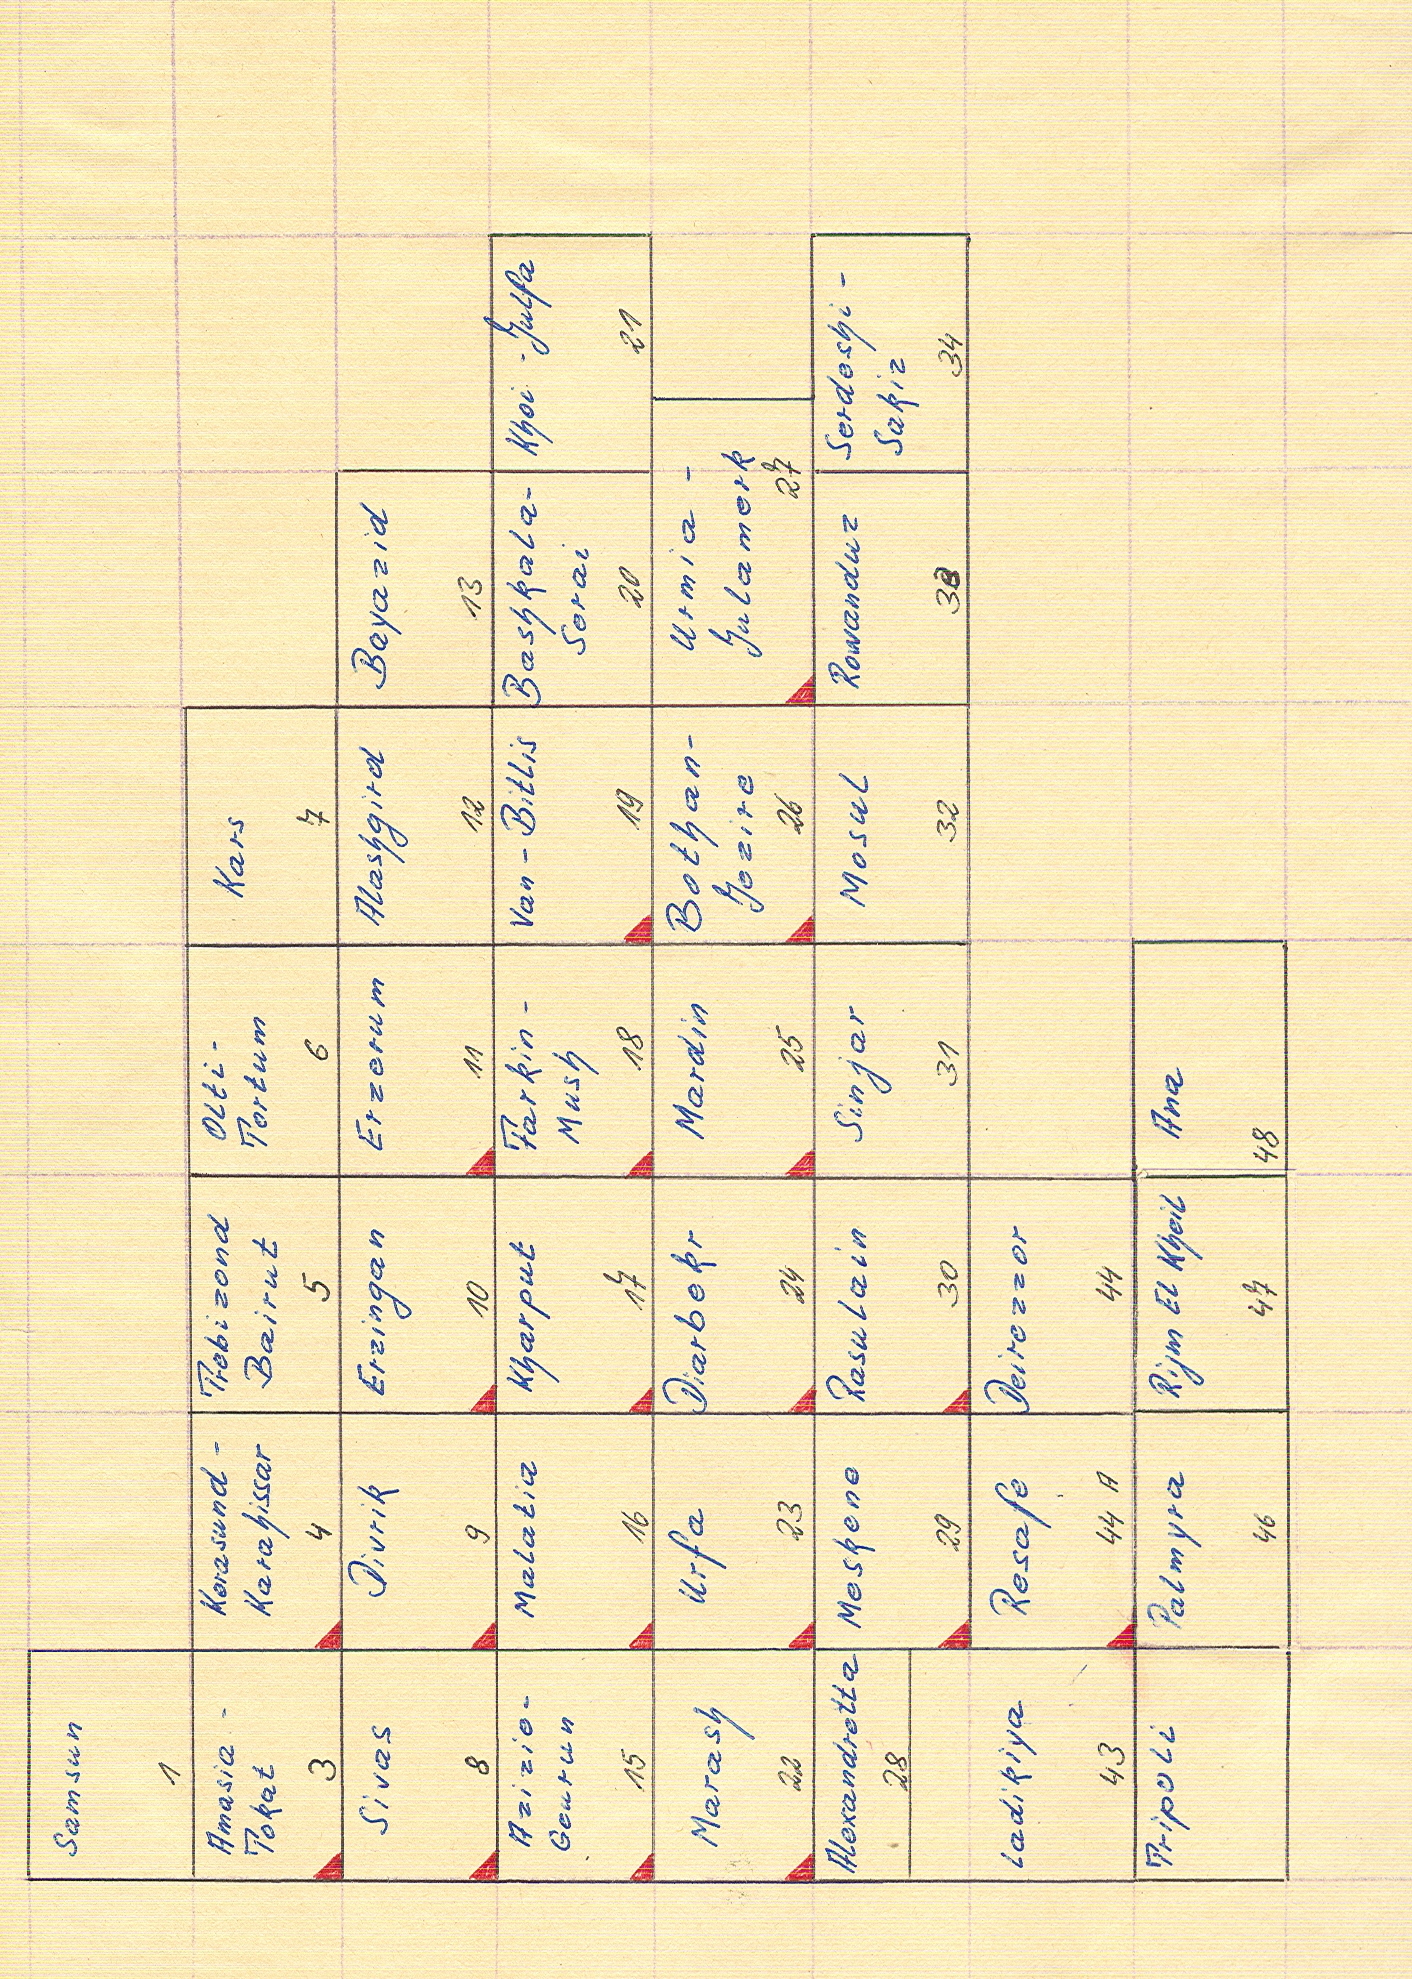 Samsun
1
Amasia -
Tokat
3
Kerasund -
Karahissar
4
Trebizond
Bairut
5
Olti -
Tortum
6
Kars
7
Sivas
8
Divrik
9
Erzingan
10
Erzerum
11
Alashgird
12
Bayazid
13
Azizie-
Geurun
15
Malatia
16
Kharput
17
Farkin -
Mush
18
Van - Bitlis
19
Bashkala-
Serai
20
Khoi - Julfa
21
Marash
22
Urfa
23
Diarbekr
24
Mardin
25
Bothan-
Jezire
26
Urmia -
Julamerk
27
Alexandretta
28
Meskene
29
Rasulain
30
Sinjar
31
Mosul
32
Rowanduz
33
Serdeshi -
Sakiz
34
Ladikiya
43
Resafe
44 A
Deirezzor
44
Tripoli
Palmyra
46
Rijm El Kheil
47
Ana
48